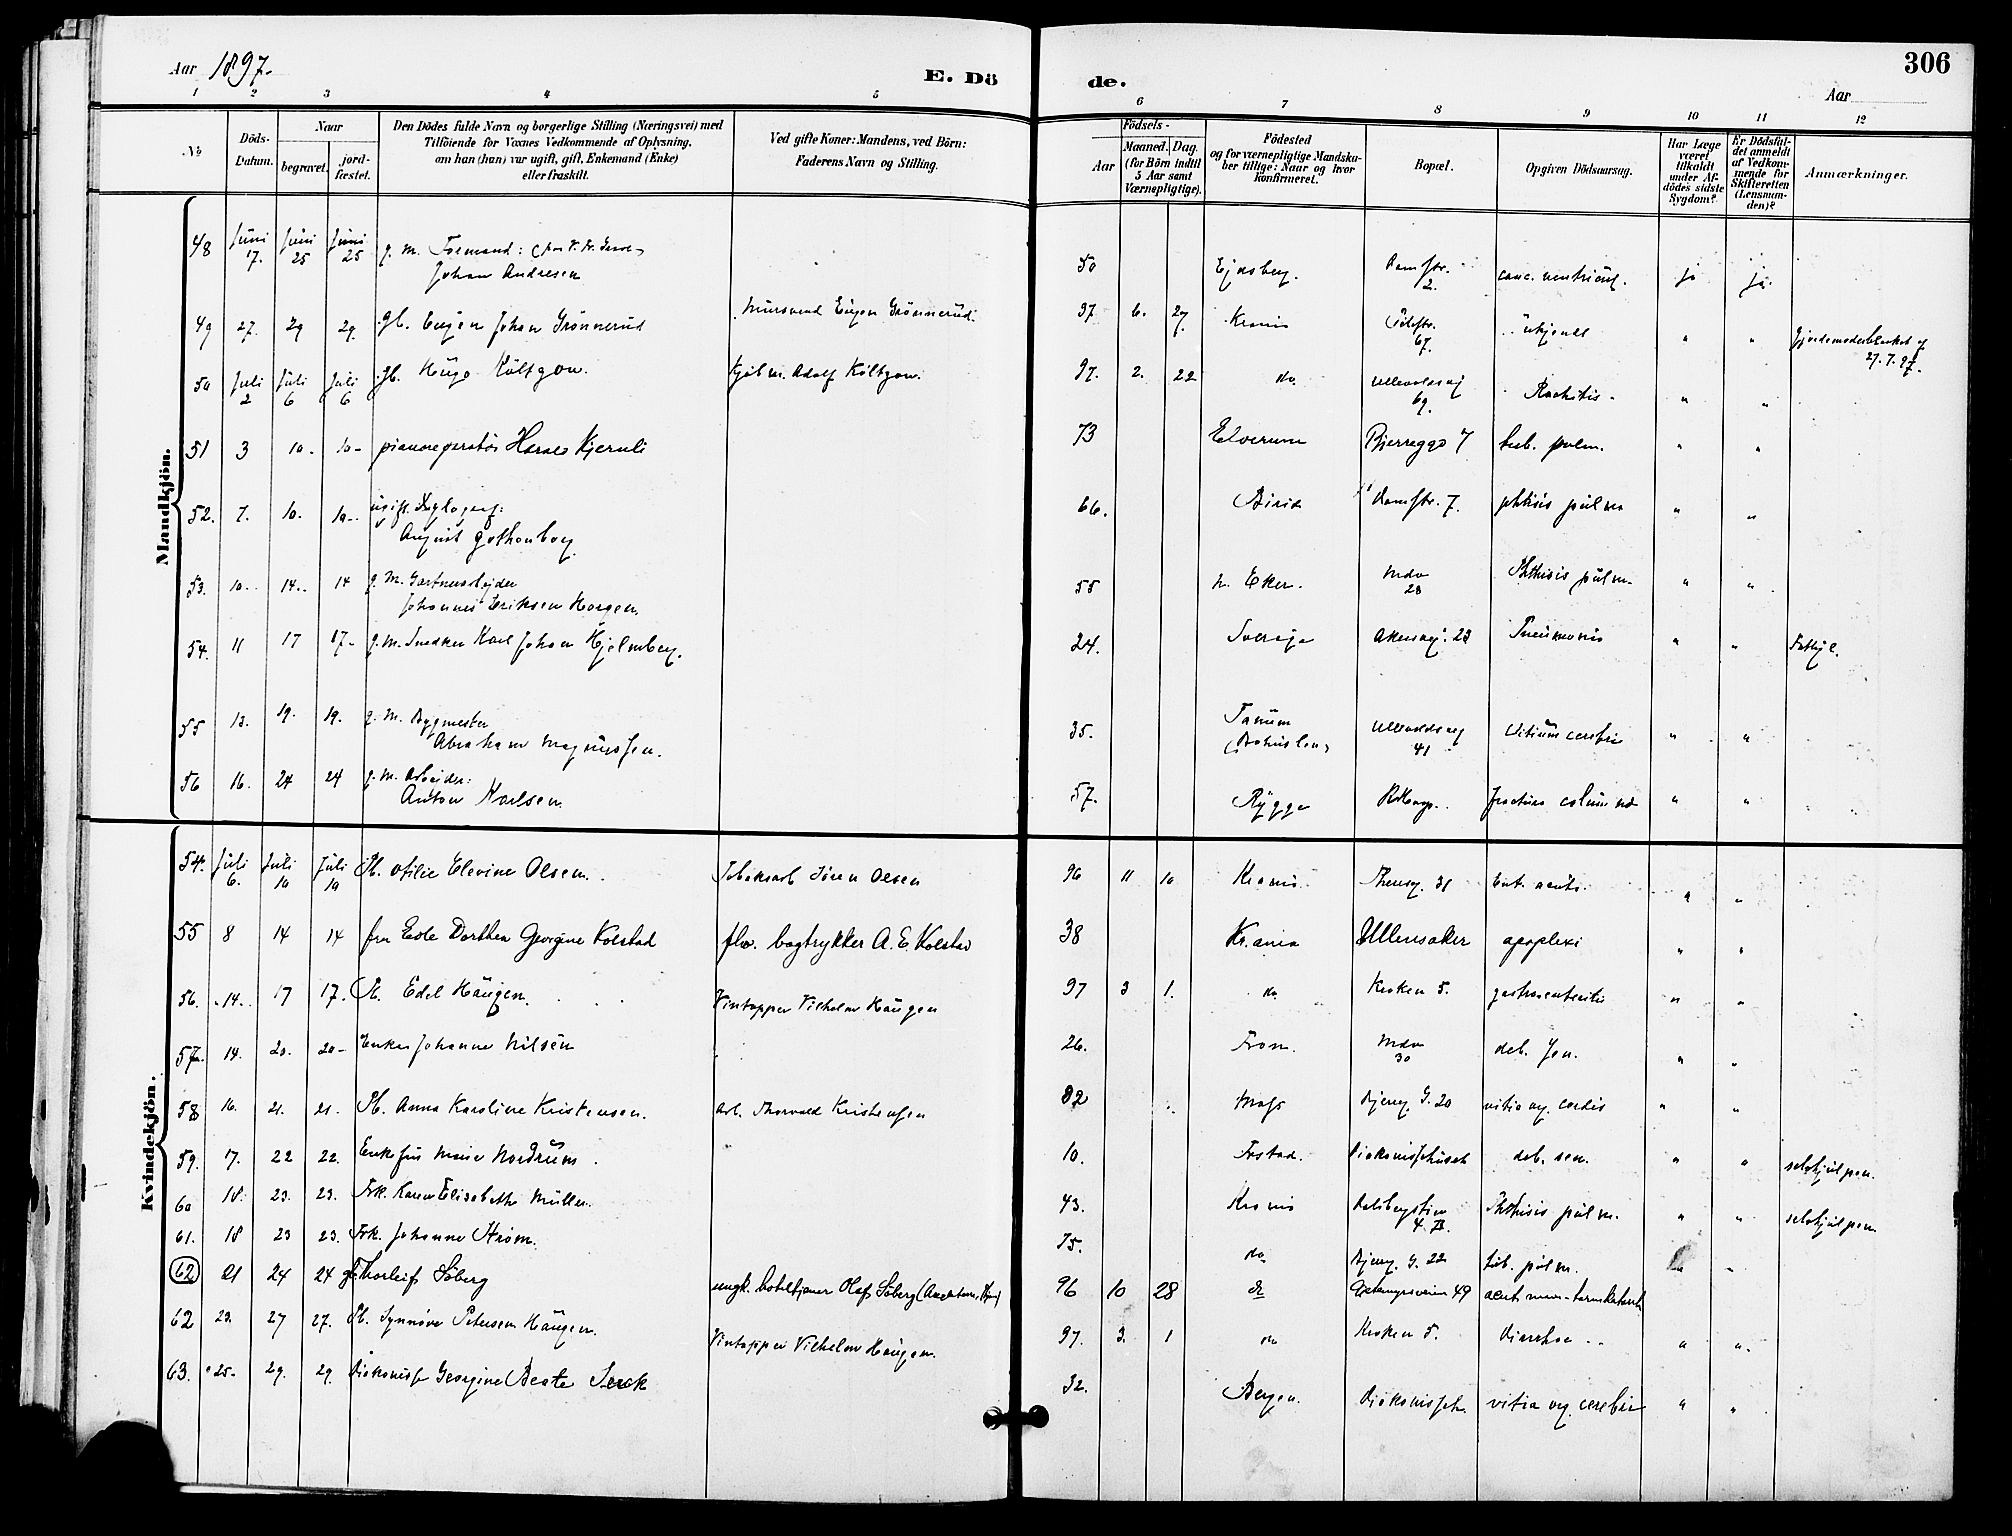 Aar 1897.
E. Dö
de.
306
Aar
1 2 3 4 5 6 7 8 9 10 11 12
No
Döds-Datum.
Naar
begravet.
jord-fæstet.
Den Dödes fulde Navn og borgerlige Stilling (Næringsvei) med
Tilföiende for Voxnes Vedkommende af Oplysning,
om han (hun) var ugift, gift, Enkemand (Enke)
eller fraskilt.
Ved gifte Koner: Mandens, ved Börn:
Faderens Navn og Stilling.
Födsels-
Aar
Maaned. Dag.
(for Börn indtil
5 Aar samt
Værnepligtige).
Födested
og for værnepligtige Mandska-
ber tillige: Naar og hvor
konfirmeret.
Bopæl.
Opgiven Dödsaarsag.
Har Læge
været
tilkaldt
under Af-
dödes sidste
Sygdom?
Er Dödsfal-
det anmeldt
af Vedkom-
mende for
Skifteretten
(Lensman-
den)?
Anmærkninger.
Mandkjön.
48 Juni 17. Juni 25 Juni 25 g. m. Formand: Johan Andresen 50 Damstr. 2. canc. ventricul. ja ja.
49 27. 29 29. gb. Eugen Johan Grönnerud Murersvend Eugen Grönnerud. 97 6. 27 Krania Pilestr. 67. ukjendt " " 27.7.97.
50 Juli 2 Juli 6 Juli 6 gb. Hugo Költzow. Adolf Költzow. 97. 2. 22 do Ullevoldsvej 69. Rachitis. " "
51 3 10. 10. Kjernli 73 Elverum Bjerreggd 7 tub. pulm. " "
52. 7. 10. 10. ugift August Gothenborg 66. Birid Damstr. 7. phtisis pulm " "
53. 10. 14. 14 g. m. Gartnerarbejder Johannes Eriksen Horgen. 55 n. Eker. 28 Phthisis pulm. " "
54. 11 17 17. g. m. Snedker Karl Johan Hjelmberg. 24. Sverige Akersvej. 23 Pneumonia " "
55 13. 19. 19. g. m. Bygmester Abraham Magnussen. 35. Tanum (Bohuslen) Ullevoldsvej 41 Vitium cerebri " "
56 16. 24 24 g. m. Arbejder: Anton Karlsen. 57. Rygge fractura columnæ " "
Kvindekjön.
54. Juli 6. Juli 10 Juli 10 Pb. Otilie Elevine Olsen. Tobaksarb. Sören Olsen 96 11 10 Krania. Theresg. 31 Ent. acuta. " "
55 8 14 14 fru Edle Dorthea Georgine Kolstad fhv. bogtrykker A. E. Kolstad 38 Kr.ania Ullensaker apoplexi " "
56. 14. 17 17. Pb. Edel Haugen. Vintapper Vilhelm Haugen 97 3 1. do Kroken 5. gastroenteritis " "
57. 14. 20. 20. Enke Johanne Nilsen 26. From. 30 deb. sen. " "
58 16. 21. 21. Pb. Anna Karoline Kristensen. arb. Thorvald Kristensen 82 Moss Bjerreg. G. 20 vitia og. cordis " "
59. 17. 22 22. Enkefru Marie Nordrum. 10. Fr.stad. Diakonissehuset deb. sen. " " selvhjulpen.
60 18. 23. 23. Frk. Karen Elisabeth Müller. 43. Krania Dalsbergstien 4. B. Phthisis pulm. " " selvhjulpen
61. 18 23 23. Frk. Johanne Strøm. 75. do Bjerreg. G. 22 tub. pulm. "
62 21 24 24 gb. Thorleif Söberg ungk. hoteltjener Olaf Söberg 96 10 28 do 49 acut. mave-tarmkatarrh
62 23. 27 27. Pb. Synnöve Petersen Haugen. Vintapper Vilhelm Haugen. 97. 3. 1 do Kroken 5. Diarrhoe " "
63. 25. 29. 29. Diakonisse Georgine Beate Serck 32. Bergen. Diakonisseh. vitia og. cerebri " "